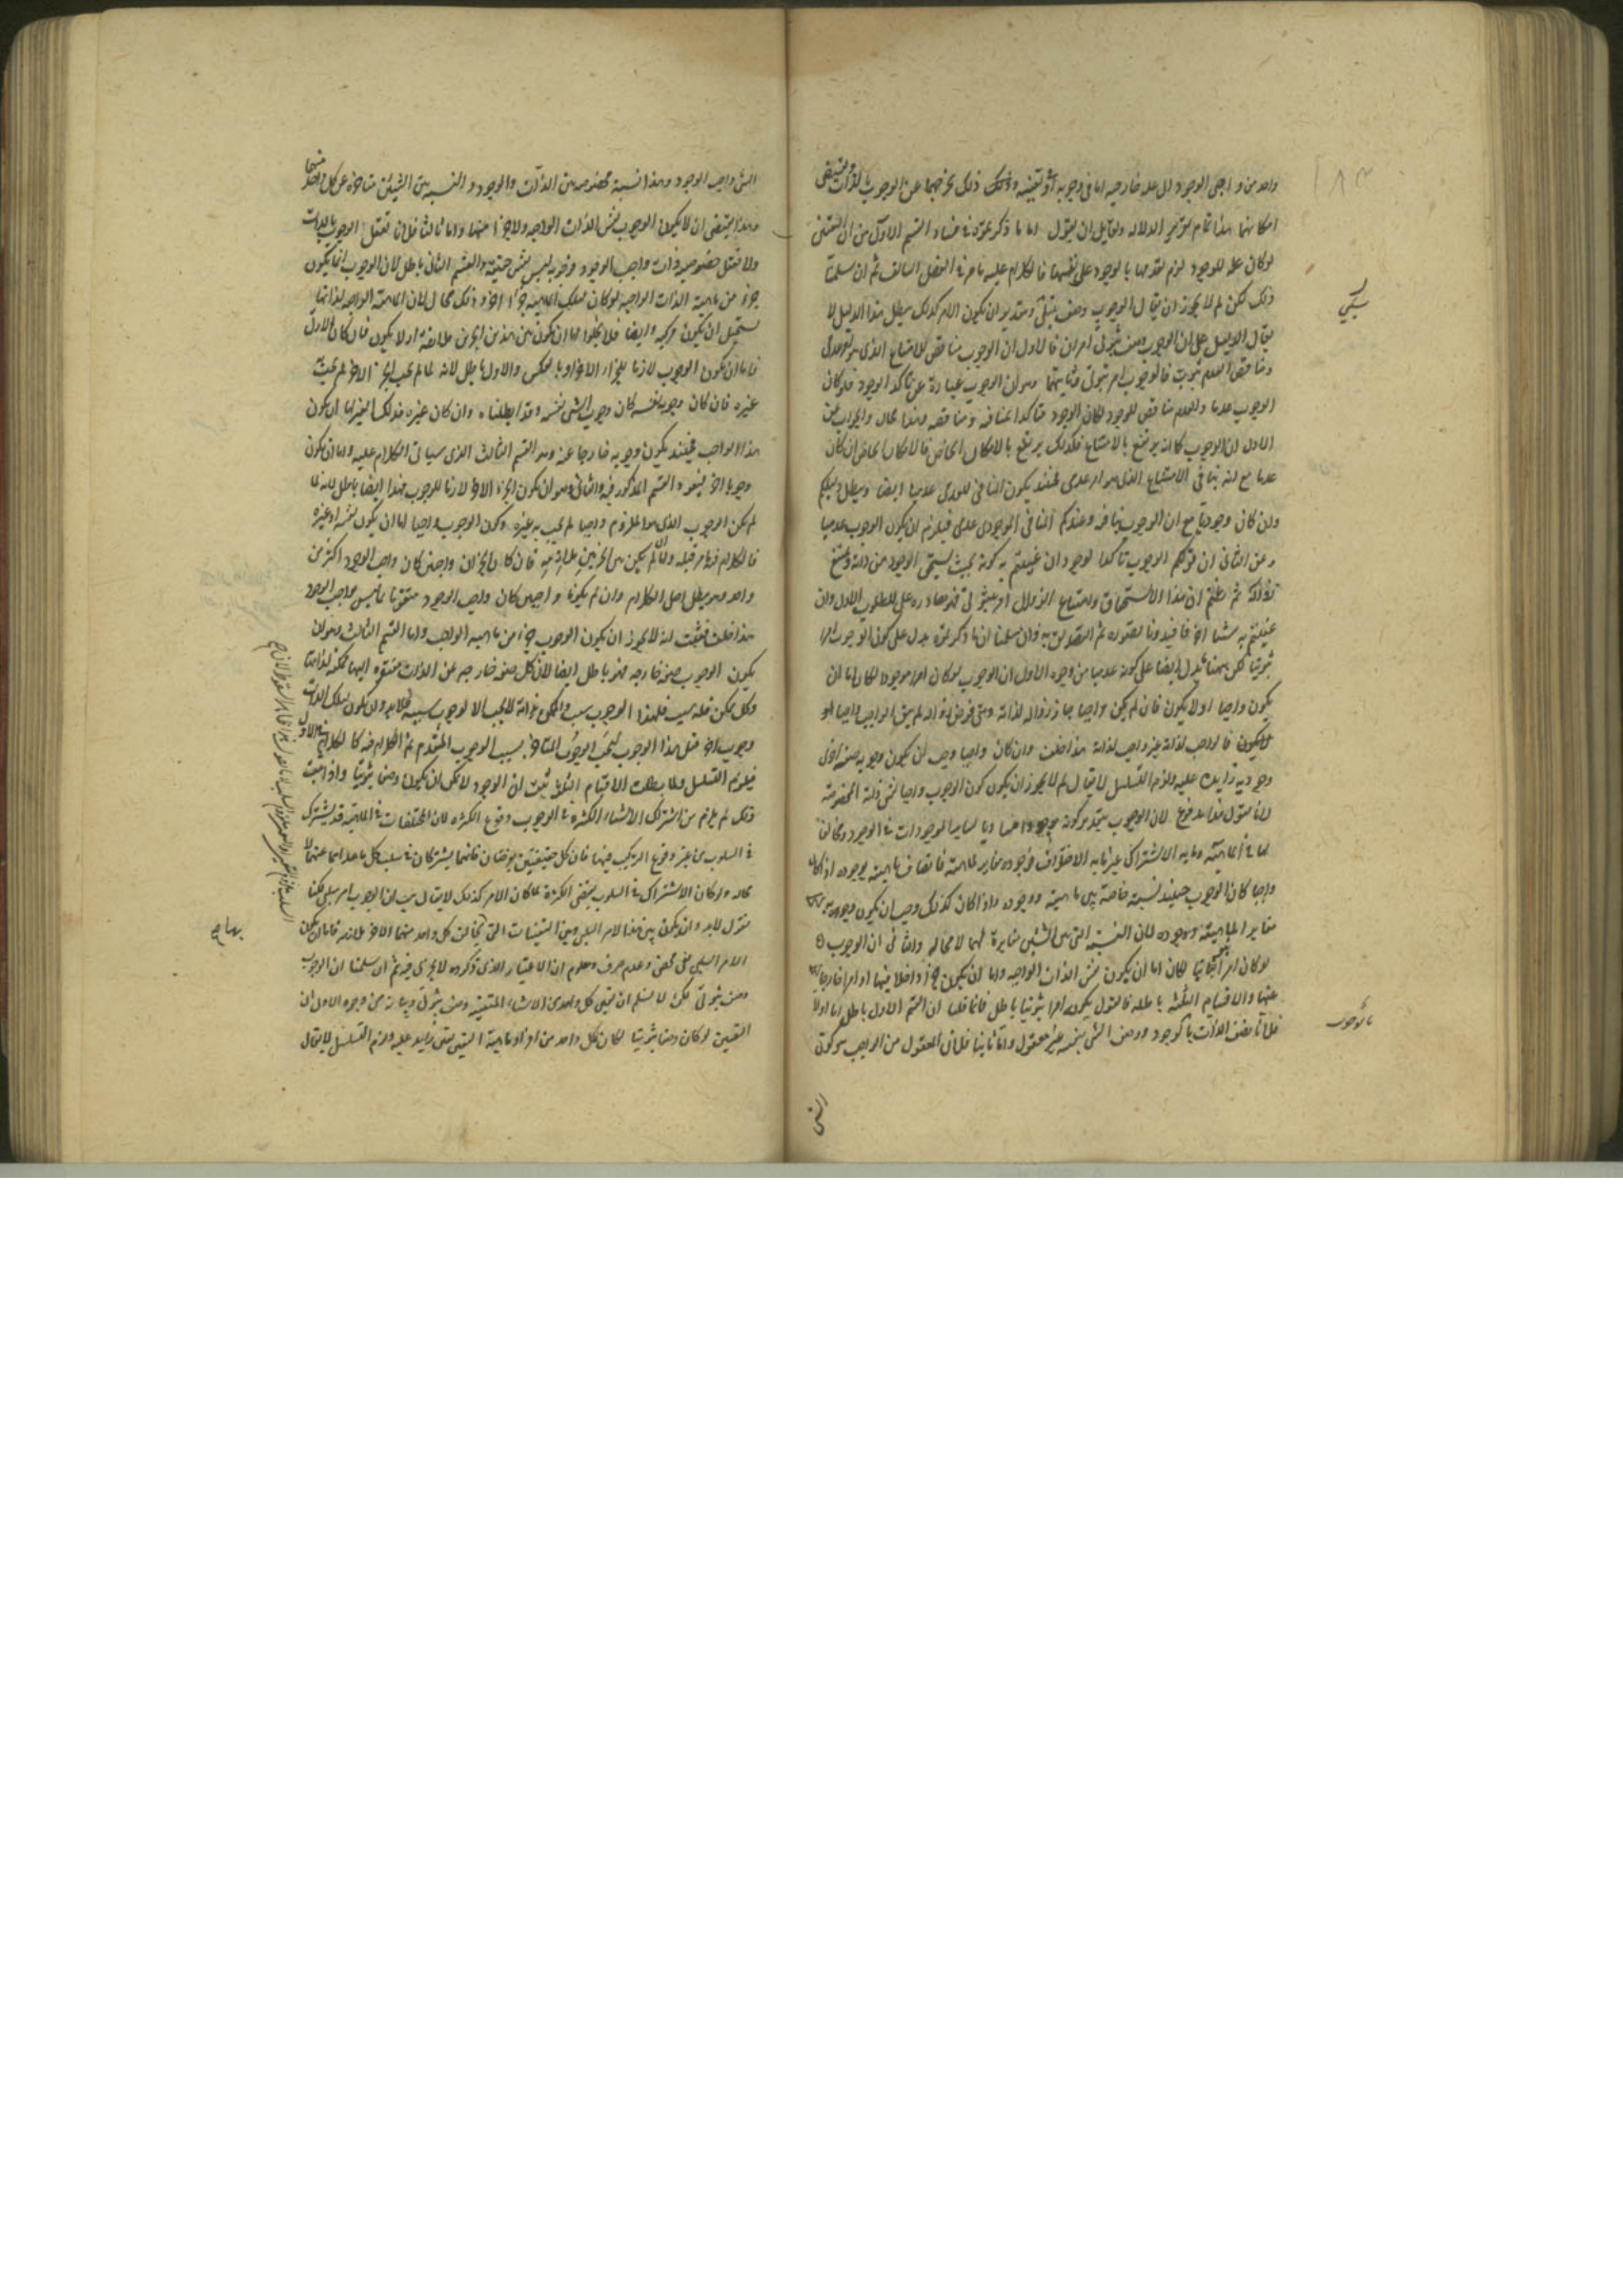 واحد من واجبى الوجود الى علة خارجية اما فى وجوبه او تعينه وذلك يخرجهما عن الوجوب بالذات ويقتضى
امكانهما هذا تمام تقرير الدلالة ولقايل ان يقول اما ما ذكرتموه فى فساد القسم الاول من ان المقتضى
لو كان علة للوجود لزم تقدمها بالوجود على نفسها فالكلام عليه ما مر فى الفصل السالف ثم ان سلمنا
ذلك لكن لم لا يجوز ان يقال الوجوب وصف سلبى وبتقدير ان يكون الامر كذلك يبطل هذا الدليل لا
يقال الدليل على ان الوجوب وصف ثبوتى امران فالاول ان الوجوب مناقض للامتناع الذى هو عدمى
ومناقض العدم ثبوت فالوجوب امر ثبوتى وثانيهما وهو ان الوجوب عبارة عن تاكد الوجود فلو كان
الوجوب عدما والعدم مناقض للوجود لكان الوجود متاكدا بمنافيه ومناقضه وهذا محال والجواب عن
الاول ان الوجوب كما انه يرتفع بالامتناع فكذلك يرتفع بالامكان الخاص فالامكان الخاص ان كان
عدما مع انه ينافى الامتناع الذى هو امر عدمى فحينئذ يكون المنافى للعدمى عدميا ايضا ويبطل دليلكم
وان كان وجوديا مع ان الوجوب ينافيه وعندكم المنافى للوجودى عدمى فيلزم ان يكون الوجوب عدميا
وعن الثانى ان قولكم الوجوب تاكد الوجود ان عنيتم به كونه بحيث يستحق الوجود من ذاته ويمتنع
زواله ثم ادعيتم ان هذا الاستحقاق وامتناع الزوال امر ثبوتى فهو مصادرة على المطلوب الاول وان
عنيتم به شيئا اخر فافيدونا تصوره ثم التصديق به وان سلمنا ان ما ذكرتموه يدل على كون الوجوب امرا
ثبوتيا لكن ههنا ما يدل ايضا على كونه عدميا من وجوه الاول ان الوجوب لو كان امرا موجودا لكان اما ان
يكون واجبا او لا يكون فان لم يكن واجبا جاز زواله لذاته ومتى فرض زواله لم يبق الواجب واجبا
فالواجب لذاته غير واجب لذاته هذا خلف وان كان واجبا وجب ان يكون وجوبه صفة اخرى
وجودية زايدة عليه ولزم التسلسل لا يقال لم لا يجوز ان يكون كون الوجوب واجبا نفس ذاته المخصوصة
لانا نقول هذا مدفوع لان الوجوب بتقدير كونه موجودا مساويا لساير الموجودات فى الوجود ومخالفا
لها فى الماهية وما به الاشتراك غير ما به الافتراق فوجوده مغاير لماهيته فاتصاف ماهيته بوجوده اذا كان
واجبا كان الوجوب حينئذ نسبة خاصة بين ماهيته ووجوده واذا كان كذلك وجب ان يكون وجوبه
مغايرا لماهيته ووجوده لان النسبة التى بين الشيئين مغايرة لهما لا محالة والثانى ان الوجوب
لو كان امرا ثبوتيا لكان اما ان يكون نفس الذات الواجبة واما ان يكون جزءا داخلا فيها او امرا خارجا
عنها والاقسام الثلثة باطلة فالقول بكونه امرا ثبوتيا باطل فانما قلنا ان القسم الاول باطل اما اولا
فلانا نصف الذات بالوجود ووصف الشى بنفسه غير معقول واما ثانيا فلان المعقول من الواجب هو كون
الشى
بالوجوب
الشى واجب الوجود وهذا نسبة مخصوصة بين الذات والوجود والنسبة بين الشيئين متاخرة عن كل واحد منهما
وهذا يقتضى ان لا يكون الوجوب نفس الذات الواجبة ولا جزءا منها واما ثالثا فلانا نعقل الوجوب بالذات
ولا نعقل خصوصية ذات واجب الوجود فوجوبه ليس نفس حقيقته والقسم الثانى باطل لان الوجوب انما يكون
جزء من ماهية الذات الواجبة لو كان لتلك الماهية جزءا اخر وذلك محال لان الماهية الواجبة لذاتها
يستحيل ان يكون مركبة وايضا فلا يخلوا اما ان يكون بين هذين الجزئين ملازمة او لا يكون فان كان الاول
فاما ان يكون الوجوب لازما للجزء الاخر او بالعكس والاول باطل لانه ما لم يجب الجزء الاخر لم يجب
غيره فان كان وجوبه نفسه كان وجوب الشى نفسه وقد ابطلناه وان كان غيره فذلك الغير اما ان يكون
هذا الواجب فحينئذ يكون وجوبه خارجا عنه وهو القسم الثالث الذى سياتى الكلام عليه واما ان يكون
وجوبا اخر فيعود القسم المذكور فيه والثانى وهو ان يكون الجزء الاخر لازما للوجوب فهذا ايضا باطل لانه ما
لم يكن الوجوب الذى هو الملزوم واجبا لم يجب به غيره وكون الوجوب واجبا اما ان يكون نفسه او غيره
فالكلام فيه ما مر قبله وان لم يكن بين الجزئين ملازمة فان كان الجزان واجبين كان واجب الوجود اكثر من
واحد وهو يبطل اصل الكلام وان لم يكونا واجبين كان واجب الوجود متقوما بما ليس بواجب الوجود
هذا خلف فثبت انه لا يجوز ان يكون الوجوب جزءا من ماهية الواجب واما القسم الثالث وهو ان
يكون الوجوب صفة خارجة فهو باطل ايضا لان كل صفة خارجة عن الذات مفتقرة اليها ممكنة لذاتها
وكل ممكن فله سبب فلهذا الوجوب سبب والممكن لذاته لا يجب الا لوجوب سببه فلابد وان يكون لتلك الذات
وجوب اخر قبل هذا الوجوب ليجب الوجوب المتاخر بسبب الوجوب المتقدم ثم الكلام فيه كالكلام فى الاول
فيلزم التسلسل ولما بطلت الاقسام الثلثة ثبت ان الوجوب لا يمكن ان يكون وصفا ثبوتيا واذا ثبت
ذلك لم يلزم من اشتراك الاشياء الكثيرة فى الوجوب وقوع الكثرة لان المختلفات فى الماهية قد يشترك
فى السلوب من غير وقوع التركيب فيها فان كل حقيقتين يوخذان فانهما يشتركان فى سلب كل ما عداهما عنهما لا
محالة ولو كان الاشتراك فى السلوب يقتضى الكثرة لما كان الامر كذلك لا يقال هب ان الوجوب امر سلبى لكنا
نقول لابد وان يكون بين هذا الامر السلبى وبين التعينات التى يخالف كل واحد منهما الاخر ملازمة فاما ان يكون
الامر السلبى نفى محض وعدم صرف ومعلوم ان الاعتبار الذى ذكروه لا يجرى فيه ثم ان سلمنا ان الوجوب
وصف ثبوتى لكن لا نسلم ان تعين كل واحد من الاشياء المتعينة وصف ثبوتى وبيانه من وجوه الاول ان
التعين لو كان وصفا ثبوتيا لكان لكل واحد من افراد ماهية التعين تعين زايد عليه ولزم التسلسل لا يقال